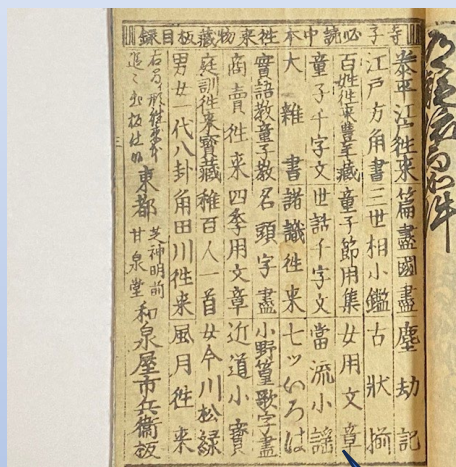 寺子必読中本徃来物藏板目録
泰平江戸徃来 篇盡 國盡 塵劫記
江戸方角 書三世相小鑑 古狀揃
百姓徃来豊年藏 童子節用集 女用文章
童子千字文 世話千字文 當流小謡
大雜書 諸識徃来 七ツいろは
實語教童子教 名頭字盡 小野篁歌字盡
商賣徃来 四季用文章 近道小寶
庭訓徃来寶藏 稚百人一首 女今川松緑
男女一代八卦 角田川徃来 風月徃来
東都 芝神明前 甘泉堂 和泉屋市兵衛板